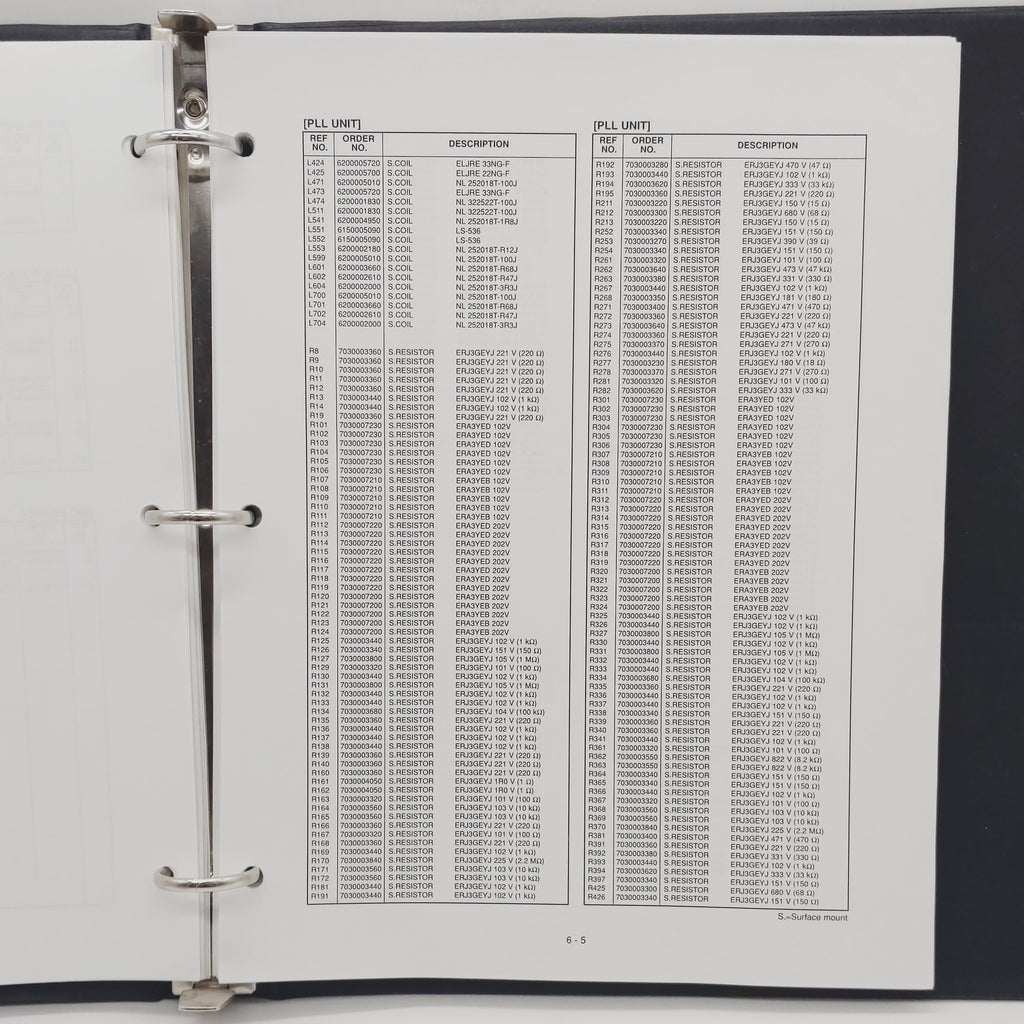 [PLL UNIT]
REF NO. ORDER NO. DESCRIPTION
L424 6200005720 S.COIL ELJRE 33NG-F
L425 6200005700 S.COIL ELJRE 22NG-F
L471 6200005010 S.COIL NL 252018T-100J
L473 6200005720 S.COIL ELJRE 33NG-F
L474 6200001830 S.COIL NL 322522T-100J
L511 6200001830 S.COIL NL 322522T-100J
L541 6200004950 S.COIL NL 252018T-1R8J
L551 6150005090 S.COIL LS-536
L552 6150005090 S.COIL LS-536
L553 6200002180 S.COIL NL 252018T-R12J
L599 6200005010 S.COIL NL 252018T-100J
L601 6200003660 S.COIL NL 252018T-R68J
L602 6200002610 S.COIL NL 252018T-R47J
L604 6200002000 S.COIL NL 252018T-3R3J
L700 6200005010 S.COIL NL 252018T-100J
L701 6200003660 S.COIL NL 252018T-R68J
L702 6200002610 S.COIL NL 252018T-R47J
L704 6200002000 S.COIL NL 252018T-3R3J
R8 7030003360 S.RESISTOR ERJ3GEYJ 221 V (220 Ω)
R9 7030003360 S.RESISTOR ERJ3GEYJ 221 V (220 Ω)
R10 7030003360 S.RESISTOR ERJ3GEYJ 221 V (220 Ω)
R11 7030003360 S.RESISTOR ERJ3GEYJ 221 V (220 Ω)
R12 7030003360 S.RESISTOR ERJ3GEYJ 221 V (220 Ω)
R13 7030003440 S.RESISTOR ERJ3GEYJ 102 V (1 kΩ)
R14 7030003440 S.RESISTOR ERJ3GEYJ 102 V (1 kΩ)
R19 7030003360 S.RESISTOR ERJ3GEYJ 221 V (220 Ω)
R101 7030007230 S.RESISTOR ERA3YED 102V
R102 7030007230 S.RESISTOR ERA3YED 102V
R103 7030007230 S.RESISTOR ERA3YED 102V
R104 7030007230 S.RESISTOR ERA3YED 102V
R105 7030007230 S.RESISTOR ERA3YED 102V
R106 7030007230 S.RESISTOR ERA3YED 102V
R107 7030007210 S.RESISTOR ERA3YEB 102V
R108 7030007210 S.RESISTOR ERA3YEB 102V
R109 7030007210 S.RESISTOR ERA3YEB 102V
R110 7030007210 S.RESISTOR ERA3YEB 102V
R111 7030007210 S.RESISTOR ERA3YEB 102V
R112 7030007220 S.RESISTOR ERA3YED 202V
R113 7030007220 S.RESISTOR ERA3YED 202V
R114 7030007220 S.RESISTOR ERA3YED 202V
R115 7030007220 S.RESISTOR ERA3YED 202V
R116 7030007220 S.RESISTOR ERA3YED 202V
R117 7030007220 S.RESISTOR ERA3YED 202V
R118 7030007220 S.RESISTOR ERA3YED 202V
R119 7030007220 S.RESISTOR ERA3YED 202V
R120 7030007200 S.RESISTOR ERA3YEB 202V
R121 7030007200 S.RESISTOR ERA3YEB 202V
R122 7030007200 S.RESISTOR ERA3YEB 202V
R123 7030007200 S.RESISTOR ERA3YEB 202V
R124 7030007200 S.RESISTOR ERA3YEB 202V
R125 7030003440 S.RESISTOR ERJ3GEYJ 102 V (1 kΩ)
R126 7030003340 S.RESISTOR ERJ3GEYJ 151 V (150 Ω)
R127 7030003800 S.RESISTOR ERJ3GEYJ 105 V (1 MΩ)
R129 7030003320 S.RESISTOR ERJ3GEYJ 101 V (100 Ω)
R130 7030003440 S.RESISTOR ERJ3GEYJ 102 V (1 kΩ)
R131 7030003800 S.RESISTOR ERJ3GEYJ 105 V (1 MΩ)
R132 7030003440 S.RESISTOR ERJ3GEYJ 102 V (1 kΩ)
R133 7030003440 S.RESISTOR ERJ3GEYJ 102 V (1 kΩ)
R134 7030003680 S.RESISTOR ERJ3GEYJ 104 V (100 kΩ)
R135 7030003360 S.RESISTOR ERJ3GEYJ 221 V (220 Ω)
R136 7030003440 S.RESISTOR ERJ3GEYJ 102 V (1 kΩ)
R137 7030003440 S.RESISTOR ERJ3GEYJ 102 V (1 kΩ)
R138 7030003440 S.RESISTOR ERJ3GEYJ 102 V (1 kΩ)
R139 7030003360 S.RESISTOR ERJ3GEYJ 221 V (220 Ω)
R140 7030003360 S.RESISTOR ERJ3GEYJ 221 V (220 Ω)
R160 7030003360 S.RESISTOR ERJ3GEYJ 221 V (220 Ω)
R161 7030004050 S.RESISTOR ERJ3GEYJ 1R0 V (1 Ω)
R162 7030004050 S.RESISTOR ERJ3GEYJ 1R0 V (1 Ω)
R163 7030003320 S.RESISTOR ERJ3GEYJ 101 V (100 Ω)
R164 7030003560 S.RESISTOR ERJ3GEYJ 103 V (10 kΩ)
R165 7030003560 S.RESISTOR ERJ3GEYJ 103 V (10 kΩ)
R166 7030003360 S.RESISTOR ERJ3GEYJ 221 V (220 Ω)
R167 7030003320 S.RESISTOR ERJ3GEYJ 101 V (100 Ω)
R168 7030003360 S.RESISTOR ERJ3GEYJ 221 V (220 Ω)
R169 7030003440 S.RESISTOR ERJ3GEYJ 102 V (1 kΩ)
R170 7030003840 S.RESISTOR ERJ3GEYJ 225 V (2.2 MΩ)
R171 7030003560 S.RESISTOR ERJ3GEYJ 103 V (10 kΩ)
R172 7030003560 S.RESISTOR ERJ3GEYJ 103 V (10 kΩ)
R181 7030003440 S.RESISTOR ERJ3GEYJ 102 V (1 kΩ)
R191 7030003440 S.RESISTOR ERJ3GEYJ 102 V (1 kΩ)
[PLL UNIT]
REF NO. ORDER NO. DESCRIPTION
R192 7030003280 S.RESISTOR ERJ3GEYJ 470 V (47 Ω)
R193 7030003440 S.RESISTOR ERJ3GEYJ 102 V (1 kΩ)
R194 7030003620 S.RESISTOR ERJ3GEYJ 333 V (33 kΩ)
R195 7030003360 S.RESISTOR ERJ3GEYJ 221 V (220 Ω)
R211 7030003220 S.RESISTOR ERJ3GEYJ 150 V (15 Ω)
R212 7030003300 S.RESISTOR ERJ3GEYJ 680 V (68 Ω)
R213 7030003220 S.RESISTOR ERJ3GEYJ 150 V (15 Ω)
R252 7030003340 S.RESISTOR ERJ3GEYJ 151 V (150 Ω)
R253 7030003270 S.RESISTOR ERJ3GEYJ 390 V (39 Ω)
R254 7030003340 S.RESISTOR ERJ3GEYJ 151 V (150 Ω)
R261 7030003320 S.RESISTOR ERJ3GEYJ 101 V (100 Ω)
R262 7030003640 S.RESISTOR ERJ3GEYJ 473 V (47 kΩ)
R263 7030003380 S.RESISTOR ERJ3GEYJ 331 V (330 Ω)
R267 7030003440 S.RESISTOR ERJ3GEYJ 102 V (1 kΩ)
R268 7030003350 S.RESISTOR ERJ3GEYJ 181 V (180 Ω)
R271 7030003400 S.RESISTOR ERJ3GEYJ 471 V (470 Ω)
R272 7030003360 S.RESISTOR ERJ3GEYJ 221 V (220 Ω)
R273 7030003640 S.RESISTOR ERJ3GEYJ 473 V (47 kΩ)
R274 7030003360 S.RESISTOR ERJ3GEYJ 221 V (220 Ω)
R275 7030003370 S.RESISTOR ERJ3GEYJ 271 V (270 Ω)
R276 7030003440 S.RESISTOR ERJ3GEYJ 102 V (1 kΩ)
R277 7030003230 S.RESISTOR ERJ3GEYJ 180 V (18 Ω)
R278 7030003370 S.RESISTOR ERJ3GEYJ 271 V (270 Ω)
R281 7030003320 S.RESISTOR ERJ3GEYJ 101 V (100 Ω)
R282 7030003620 S.RESISTOR ERJ3GEYJ 333 V (33 kΩ)
R301 7030007230 S.RESISTOR ERA3YED 102V
R302 7030007230 S.RESISTOR ERA3YED 102V
R303 7030007230 S.RESISTOR ERA3YED 102V
R304 7030007230 S.RESISTOR ERA3YED 102V
R305 7030007230 S.RESISTOR ERA3YED 102V
R306 7030007230 S.RESISTOR ERA3YED 102V
R307 7030007210 S.RESISTOR ERA3YEB 102V
R308 7030007210 S.RESISTOR ERA3YEB 102V
R309 7030007210 S.RESISTOR ERA3YEB 102V
R310 7030007210 S.RESISTOR ERA3YEB 102V
R311 7030007210 S.RESISTOR ERA3YEB 102V
R312 7030007220 S.RESISTOR ERA3YED 202V
R313 7030007220 S.RESISTOR ERA3YED 202V
R314 7030007220 S.RESISTOR ERA3YED 202V
R315 7030007220 S.RESISTOR ERA3YED 202V
R316 7030007220 S.RESISTOR ERA3YED 202V
R317 7030007220 S.RESISTOR ERA3YED 202V
R318 7030007220 S.RESISTOR ERA3YED 202V
R319 7030007220 S.RESISTOR ERA3YED 202V
R320 7030007200 S.RESISTOR ERA3YEB 202V
R321 7030007200 S.RESISTOR ERA3YEB 202V
R322 7030007200 S.RESISTOR ERA3YEB 202V
R323 7030007200 S.RESISTOR ERA3YEB 202V
R324 7030007200 S.RESISTOR ERA3YEB 202V
R325 7030003440 S.RESISTOR ERJ3GEYJ 102 V (1 kΩ)
R326 7030003440 S.RESISTOR ERJ3GEYJ 102 V (1 kΩ)
R327 7030003800 S.RESISTOR ERJ3GEYJ 105 V (1 MΩ)
R330 7030003440 S.RESISTOR ERJ3GEYJ 102 V (1 kΩ)
R331 7030003800 S.RESISTOR ERJ3GEYJ 105 V (1 MΩ)
R332 7030003440 S.RESISTOR ERJ3GEYJ 102 V (1 kΩ)
R333 7030003440 S.RESISTOR ERJ3GEYJ 102 V (1 kΩ)
R334 7030003680 S.RESISTOR ERJ3GEYJ 104 V (100 kΩ)
R335 7030003360 S.RESISTOR ERJ3GEYJ 221 V (220 Ω)
R336 7030003440 S.RESISTOR ERJ3GEYJ 102 V (1 kΩ)
R337 7030003440 S.RESISTOR ERJ3GEYJ 102 V (1 kΩ)
R338 7030003340 S.RESISTOR ERJ3GEYJ 151 V (150 Ω)
R339 7030003360 S.RESISTOR ERJ3GEYJ 221 V (220 Ω)
R340 7030003360 S.RESISTOR ERJ3GEYJ 221 V (220 Ω)
R341 7030003440 S.RESISTOR ERJ3GEYJ 102 V (1 kΩ)
R361 7030003320 S.RESISTOR ERJ3GEYJ 101 V (100 Ω)
R362 7030003550 S.RESISTOR ERJ3GEYJ 822 V (8.2 kΩ)
R363 7030003550 S.RESISTOR ERJ3GEYJ 822 V (8.2 kΩ)
R364 7030003340 S.RESISTOR ERJ3GEYJ 151 V (150 Ω)
R365 7030003340 S.RESISTOR ERJ3GEYJ 151 V (150 Ω)
R366 7030003440 S.RESISTOR ERJ3GEYJ 102 V (1 kΩ)
R367 7030003320 S.RESISTOR ERJ3GEYJ 101 V (100 Ω)
R368 7030003560 S.RESISTOR ERJ3GEYJ 103 V (10 kΩ)
R369 7030003560 S.RESISTOR ERJ3GEYJ 103 V (10 kΩ)
R370 7030003840 S.RESISTOR ERJ3GEYJ 225 V (2.2 MΩ)
R381 7030003400 S.RESISTOR ERJ3GEYJ 471 V (470 Ω)
R391 7030003360 S.RESISTOR ERJ3GEYJ 221 V (220 Ω)
R392 7030003380 S.RESISTOR ERJ3GEYJ 331 V (330 Ω)
R393 7030003440 S.RESISTOR ERJ3GEYJ 102 V (1 kΩ)
R394 7030003620 S.RESISTOR ERJ3GEYJ 333 V (33 kΩ)
R397 7030003340 S.RESISTOR ERJ3GEYJ 151 V (150 Ω)
R425 7030003300 S.RESISTOR ERJ3GEYJ 680 V (68 Ω)
R426 7030003340 S.RESISTOR ERJ3GEYJ 151 V (150 Ω)
S.=Surface mount
6 - 5